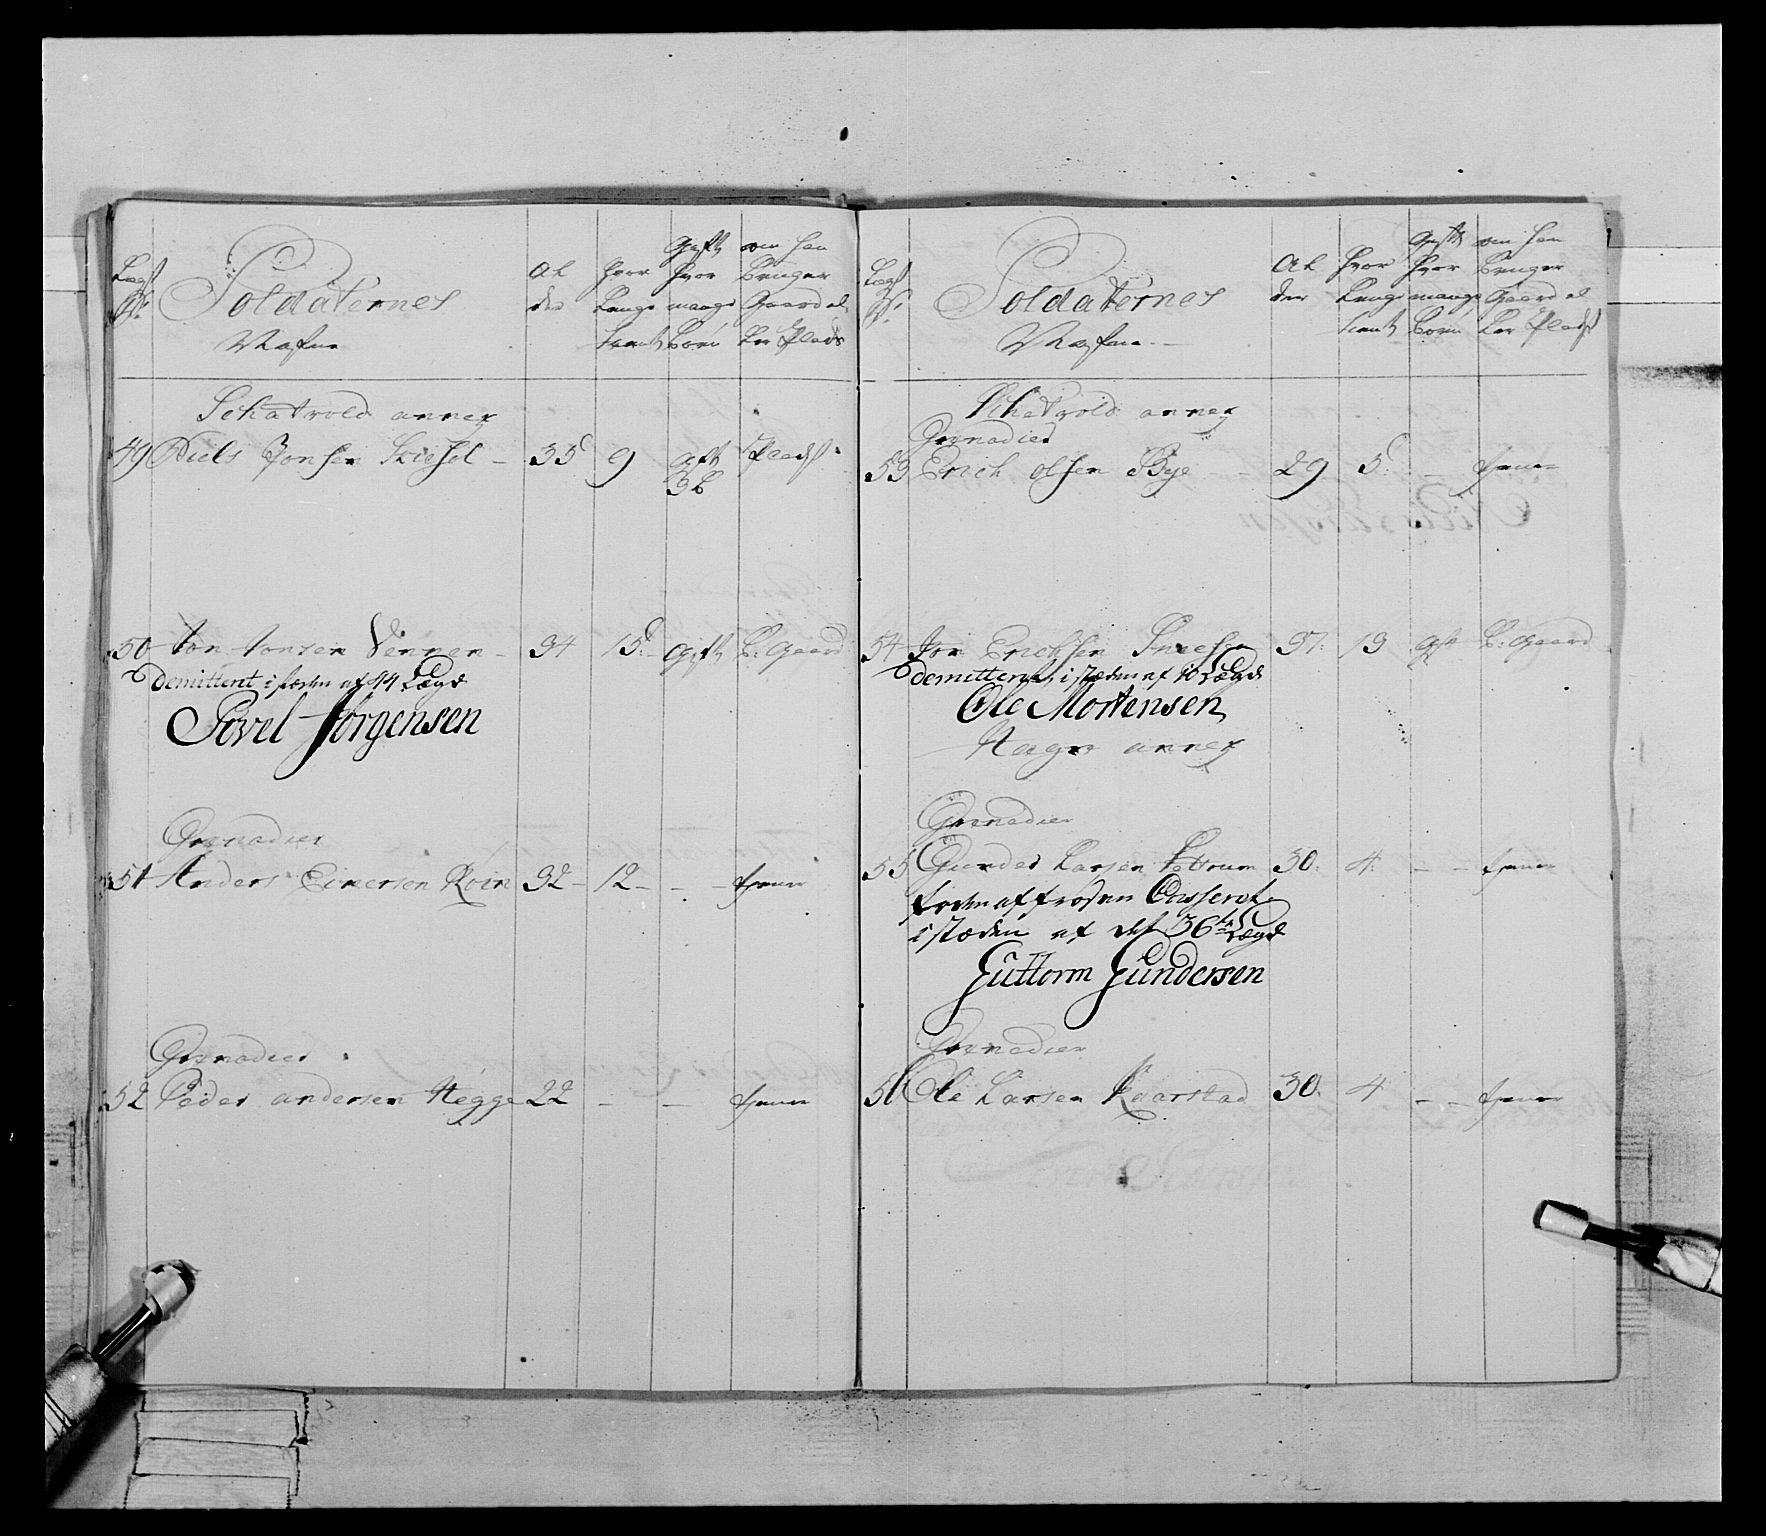 Lægs
No:
Soldaternes
Nafne
Al
der
hvor
Lenge
tient
Gift
hvor
mange
Børn
om han
Bruger
Gaard el
ler Plads
Schatvold annex
49 Niels Jonsen 35 9 gift 3 B Plads
50 Jon Jonsen Vinnen 34 15 gift B: Gaard
Demittent i stæden af 44 Lægd
Povel Jørgensen
Grenadier
51 Anders Einersen Røin 32 - 12 - - - tjener
Grenadier
52 Peder andersen Hegge 22 - - tjener
Lægs
No:
Soldaternes
Nafne
Al
der
hvor
Lenge
tient
Gift
hvor
mange
Børn
om han
Bruger
Gaard el
ler Plads
Schatvold annex
Grenadier
53 Erich olsen Bye 29 5 - tjener
54 Jon Erichsen 37 13 gift B: Gaard
Demittent i stæden af 10 Lægd
Ole Mortensen
Hagn annex
Grenadier
55 Gunder Larsen 30 4 - - tjener
Casserat
i stæden af det 36te Lægd
Guttorm Gundersen
Grenadier
56 Ole Larsen Kvarstad 30 4 - - tjener